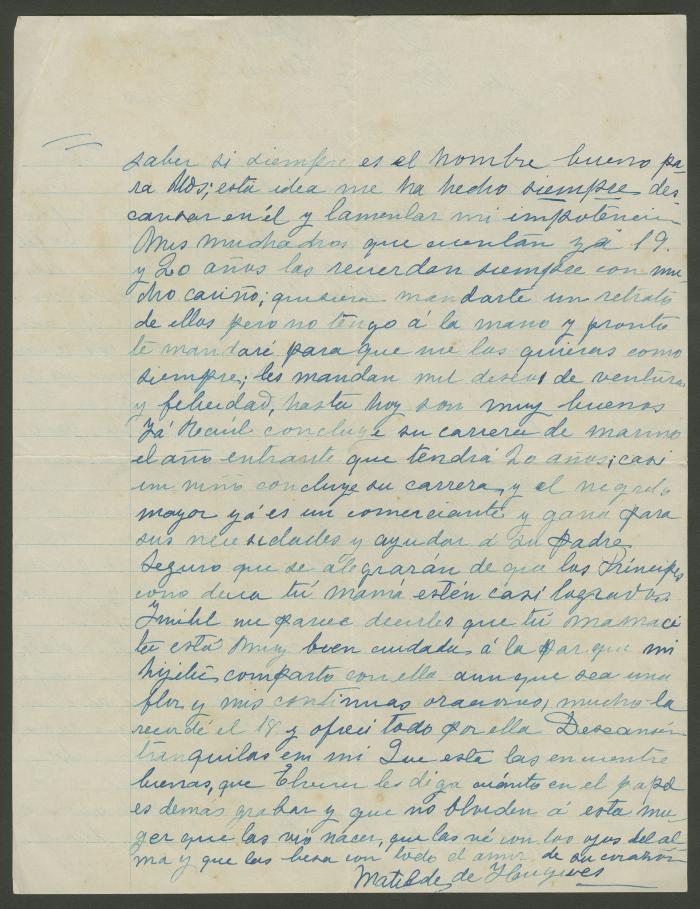 saber si siempre es el hombre bueno pa-
ra Uds; esta idea me ha hecho siempre des-
cansar en él y lamentar mi impotencia
Mis muchachos que cuentan yá 19.
y 20 años las recuerdan siempre con mu-
cho cariño; quisiera mandarte un retrato
de ellos pero no tengo á la mano y pronto
te mandaré para que me los quieras como
siempre; les mandan mil deseos de ventura
y felicidad, hasta hoy son muy buenos
Yá Raúl concluye su carrera de marino
el año entrante que tendrá 20 años; casi
un niño concluye su carrera, y el negrito
mayor yá es un comerciante y gana para
sus necesidades y ayudar á su padre,
Seguro que se alegrarán de que los Príncipes
como decia tú mamá estén casi logrados.
Inútil me parece decirles que tú mamaci-
ta está muy bien cuidada á la par que mi
hijita, comparto con ella aunque sea una
flor y mis continuas oraciones, mucho la
recordé el 18 y ofrecí todo por ella Descansen
tranquilas en mi Que esta las encuentre
buenas, que les diga cuánto en el papel
es demás grabar y que no olviden á esta mu-
ger que las vió nacer, que las vé con los ojos del al
ma y que las besa con todo el amor de su corazón
Matilde de